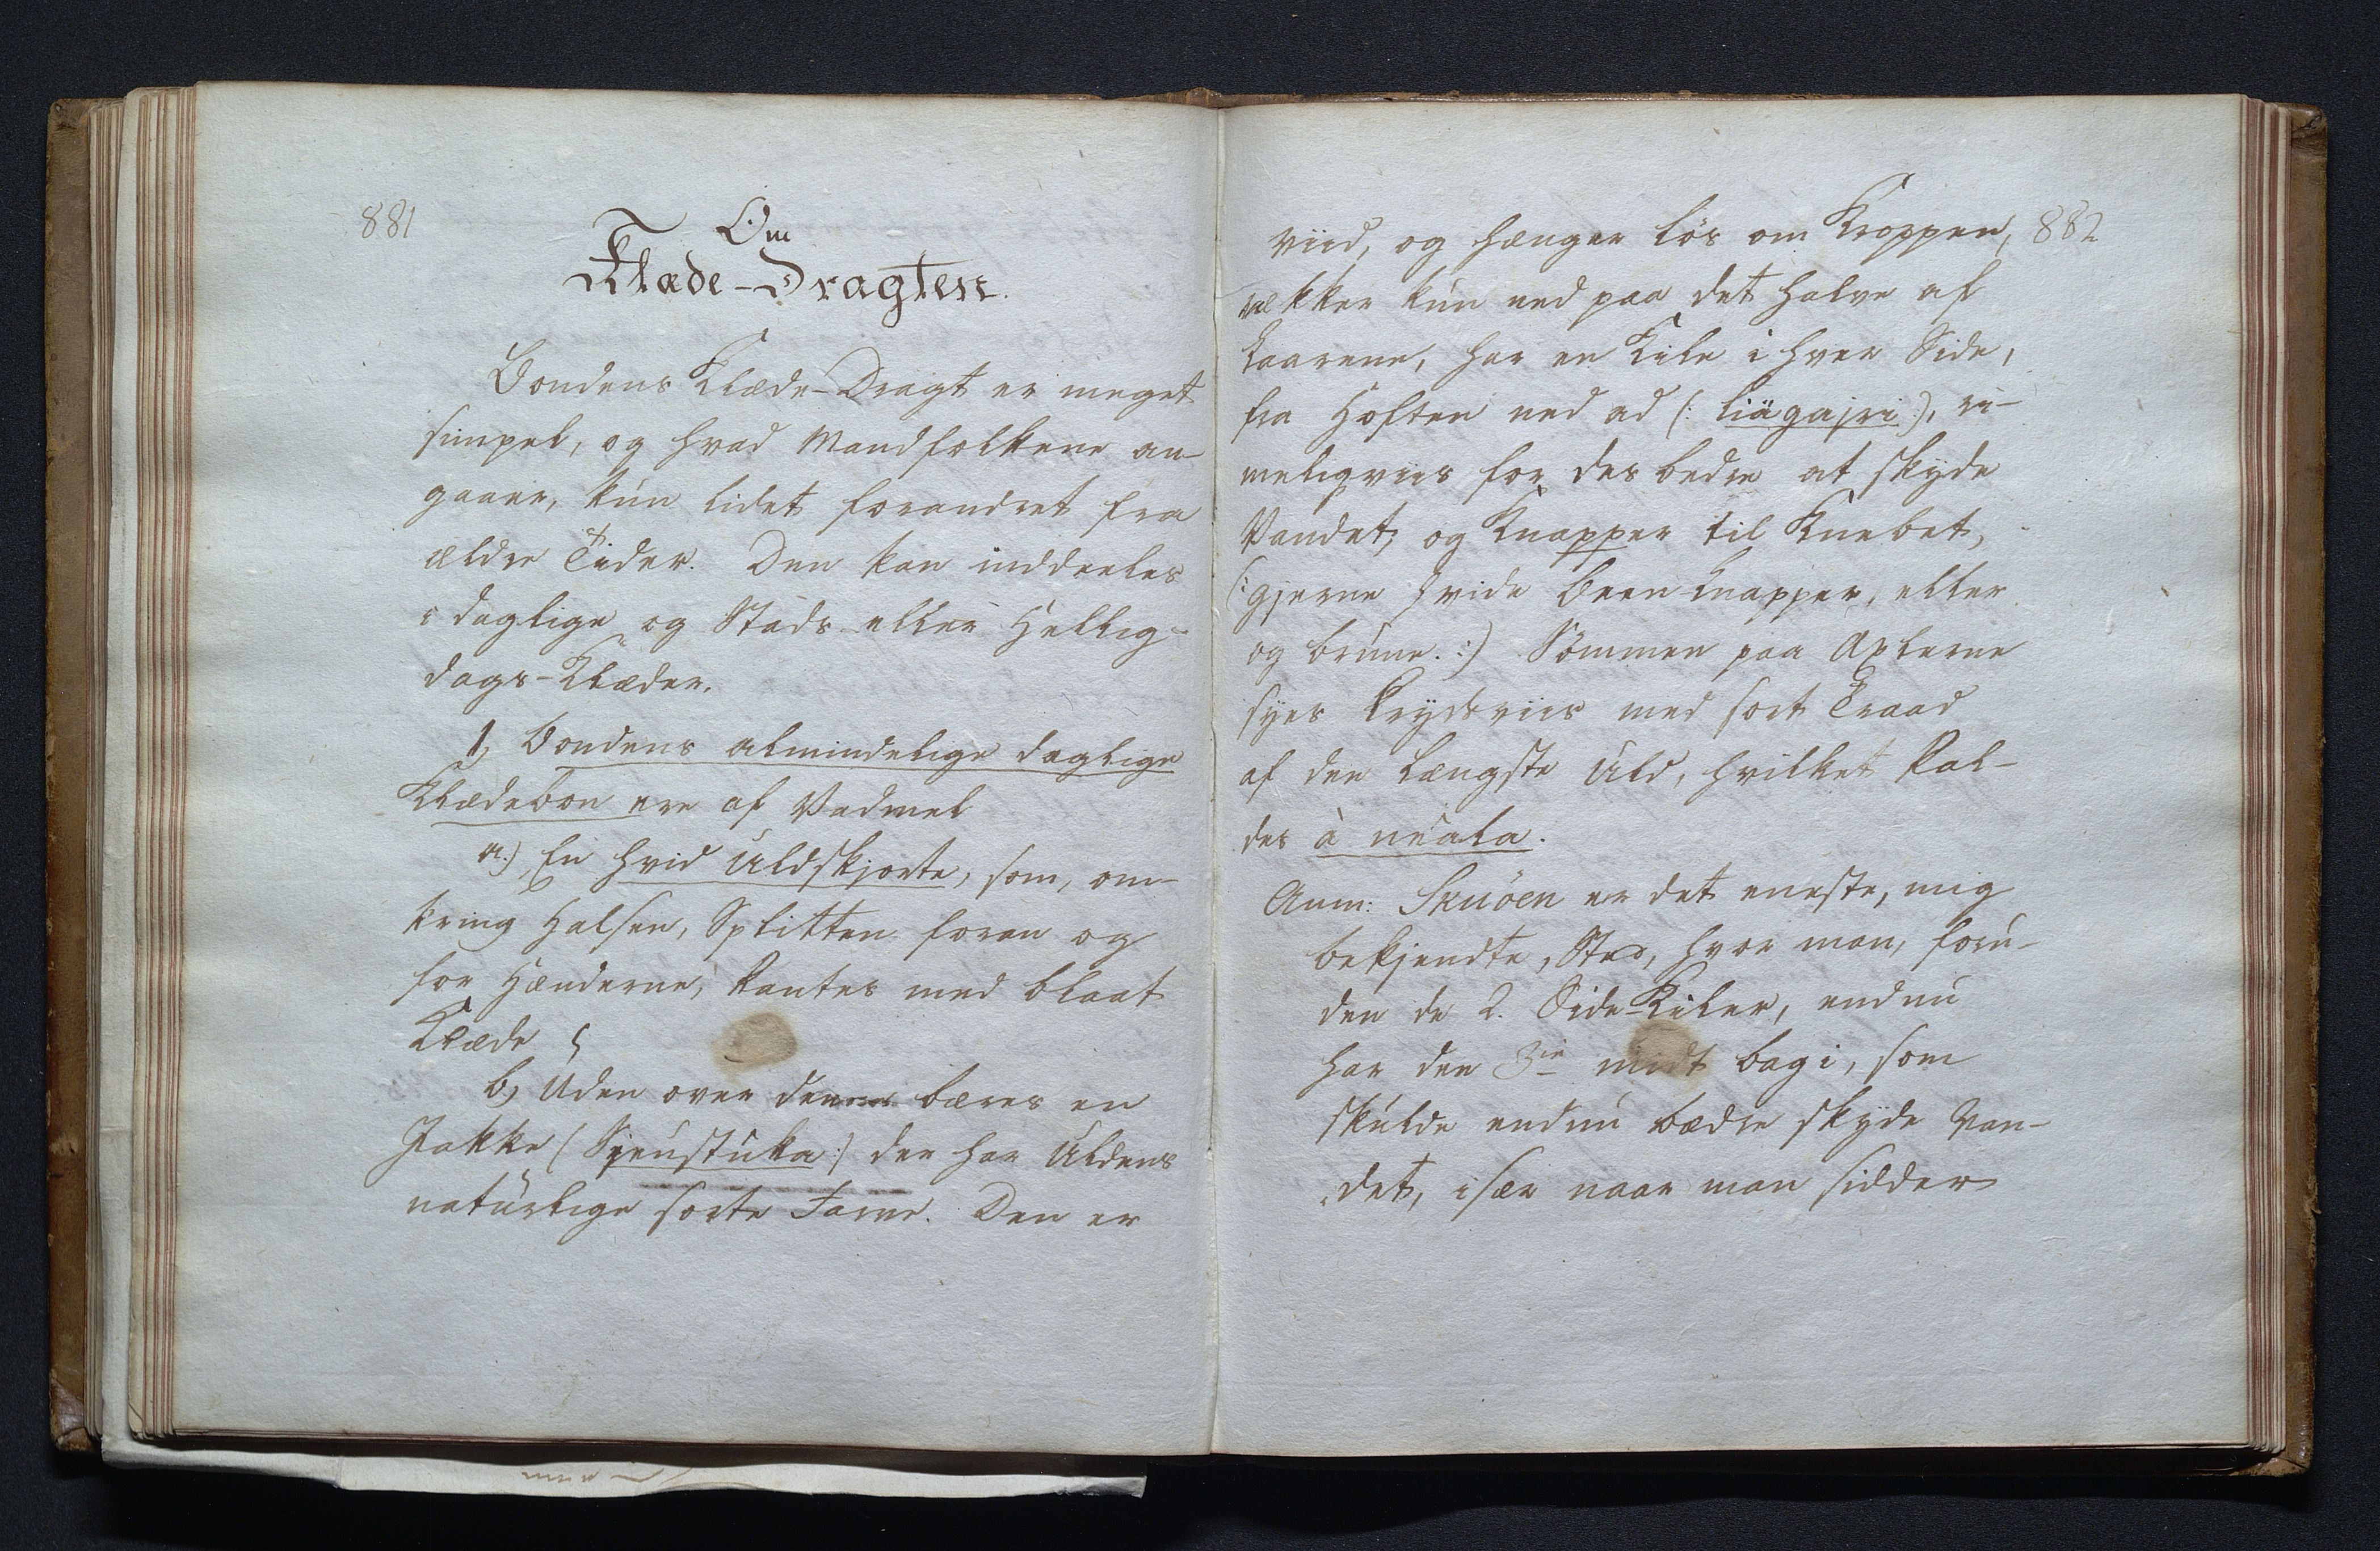 881
Om
Klæde-Dragten.
Bondens Klæde-Dragt er meget
simpel, og hvad Mandfolkene an-
gaaer, kun lidet forandret fra
ældre Tider. Den kan inddeeles
i daglige og Stads eller Hellig-
dags-Klæder.
1, Bondens almindelige daglige
Klædebon ere af Vadmel
a.) En hvid Uldskjorte, som, om-
kring Halsen, Splitten foran og
for Hænderne, kantes med blaat
Klæde
b, Uden over denne bæres en
Jakke (Sjeustuka:) der har Uldens
naturlige sorte Farve. Den er
882
viid, og hænger lös om Kroppen,
rækker kun ned paa det halve af
Laarene, har en Kile i hver Side,
fra Hoften ned ad (: liägajri:), ri-
meligviis for des bedre at skyde
Vandet, og Knapper til Knebet,
(: gjerne hvide Been knapper, eller
og brune. :) Sömmen paa Axlerne
syes krydsviis med sort Traad
af den længste Uld, hvilket kal-
des à neala.
Anm: Skuöen er det eneste, mig
bekjendte, Sted, hvor man, foru-
den de 2. Side-Kiler, endnu
har den 3ie midt bag i, som
skulde endnu bædre skyde Van-
det, især naar man sidder